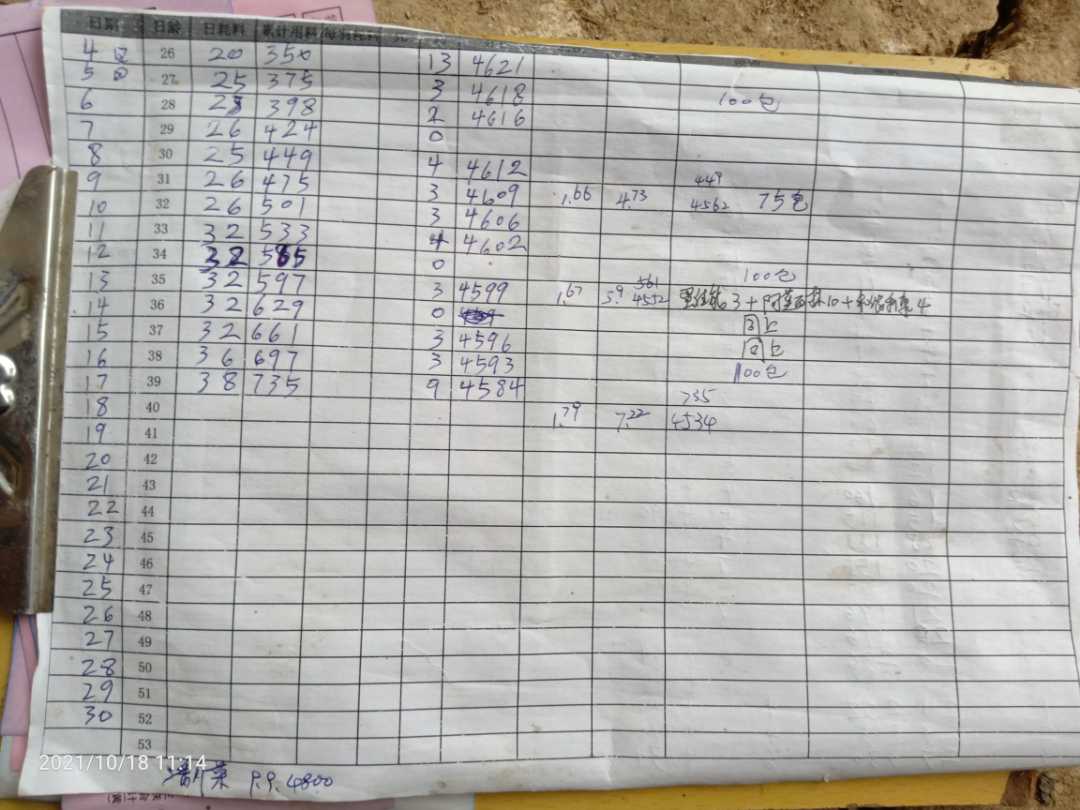 日期 日龄 日耗料 累计用料 每羽耗料
4 26 20 350 13 4621
5 27 25 375 3 4618 100包
6 28 23 398 2 4616
7 29 26 424 0
8 30 25 449 4 4612 449
9 31 26 475 3 4609 1.66 4.73 4562 75包
10 32 26 501 3 4606
11 33 32 533 4 4602
12 34 32 565 0 100包
13 35 32 597 3 4599 1.67 5.9 561 4552 3+ 10+ 4
14 36 32 629 0 同上
15 37 32 661 3 4596 同上
16 38 36 697 3 4593 100包
17 39 38 735 9 4584 735
18 40 1.79 7.22 4534
19 41
20 42
21 43
22 44
23 45
24 46
25 47
26 48
27 49
28 50
29 51
30 52
53
2021/10/18 11:14
9.9. 4800